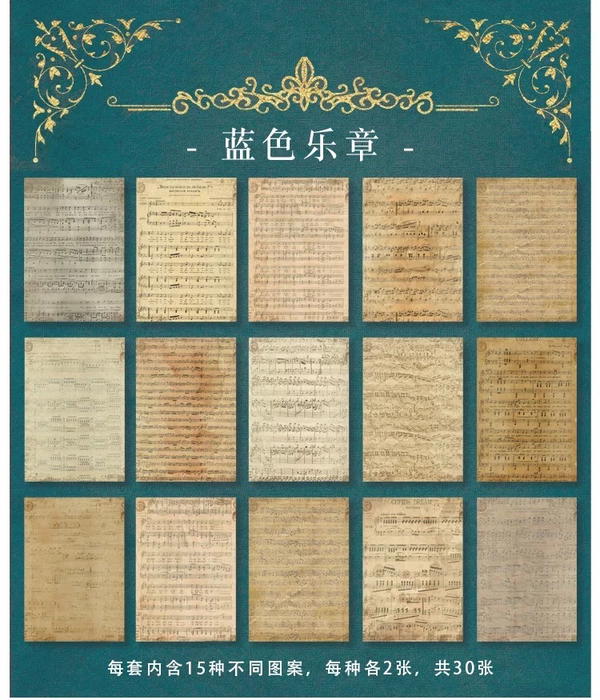 - 蓝色乐章 -
每套内含15种不同图案，每种各2张，共30张